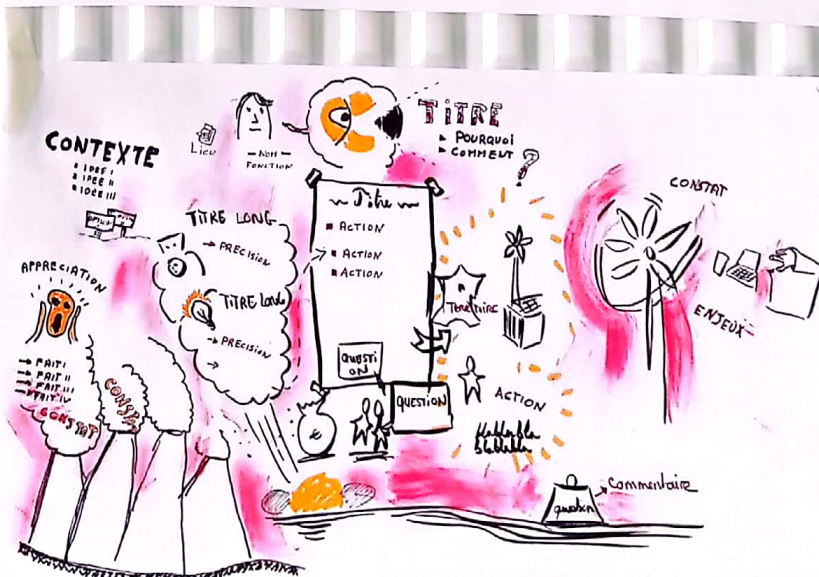 CONTEXTE
IDEE I
IDEE II
IDEE III
LIEU
NOM
FONCTION
TITRE
POURQUOI
COMMENT
?
TITRE LONG
→ PRECISION
TITRE LONG
→ PRECISION
→
Titre
ACTION
ACTION
ACTION
QUESTI
ON
QUESTION
€
TERRITOIRE
ACTION
Blablabla
blablabla
CONSTAT
ENJEUX
APPRECIATION
→ FAIT I
→ FAIT II
→ FAIT III
→ FAIT IV
CONSTAT
CONSTAT
question
→ Commentaire